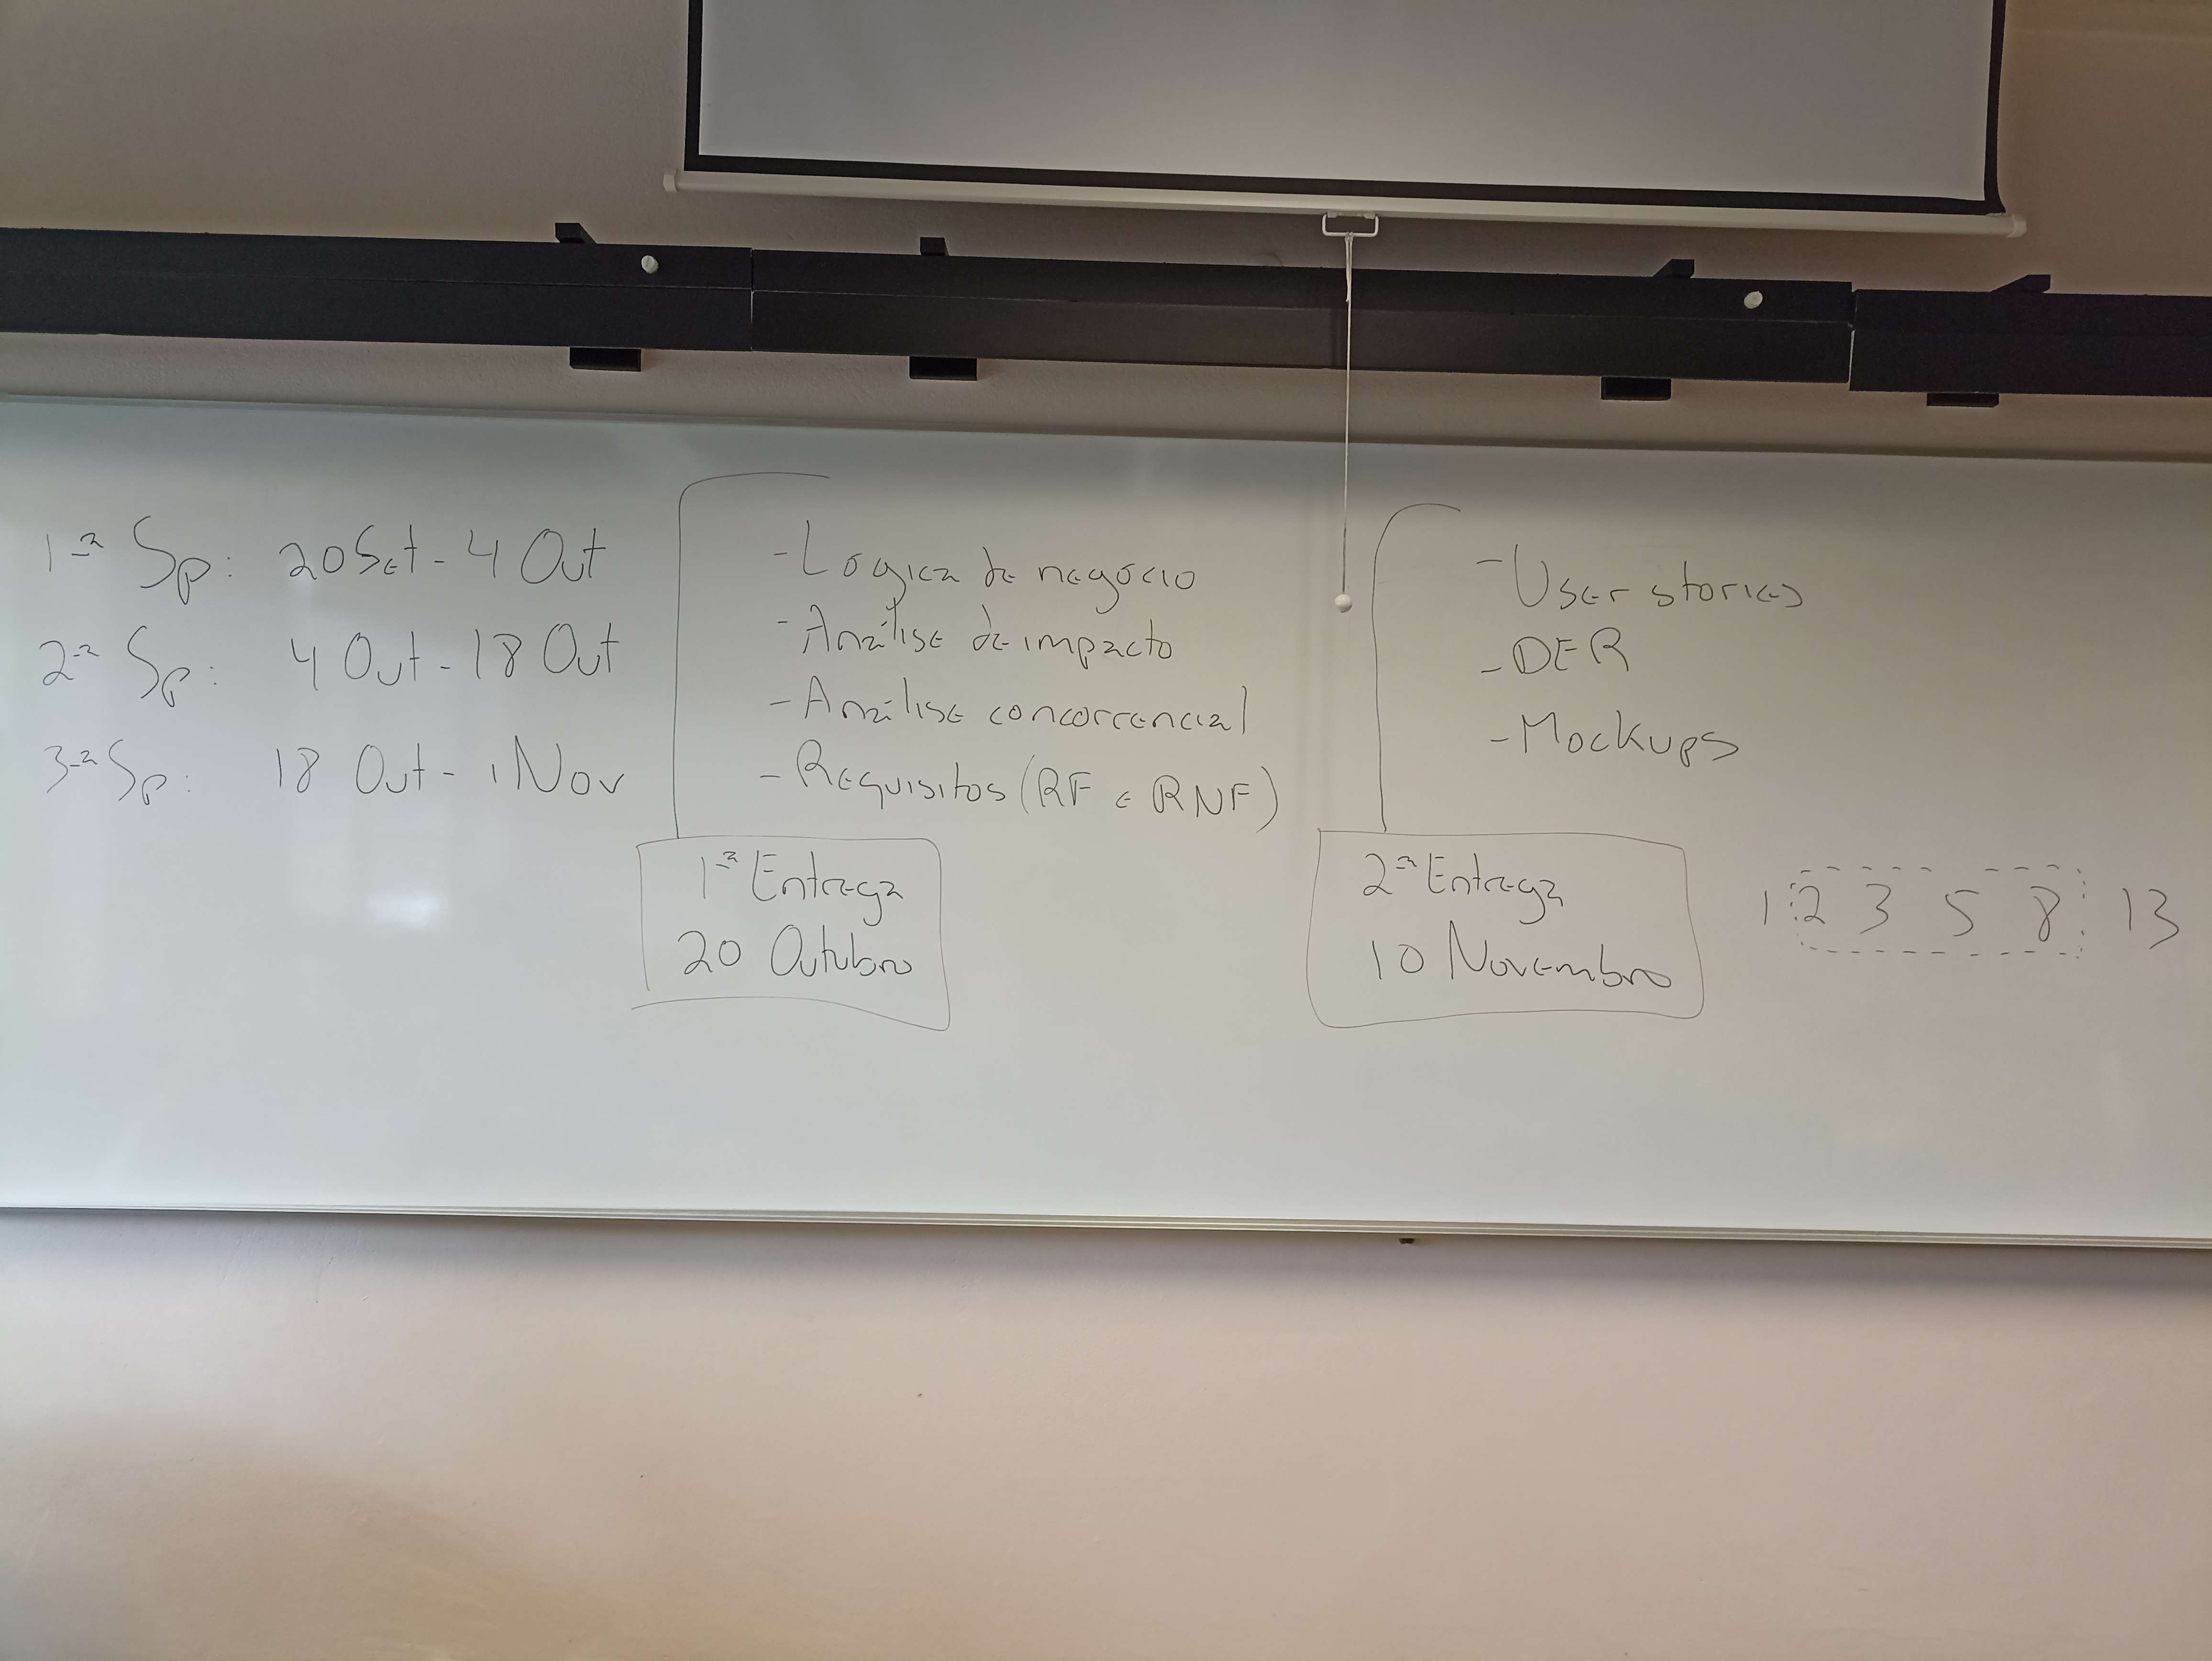 1ª Sp: 20 Set - 4 Out
2ª Sp: 4 Out - 18 Out
3ª Sp: 18 Out - 1 Nov
- Lógica de negócio
- Análise de impacto
- Análise concorrencial
- Requisitos (RF e RNF)
1ª Entrega
20 Outubro
- User stories
- DER
- Mockups
2ª Entrega
10 Novembro
1 2 3 5 8 13